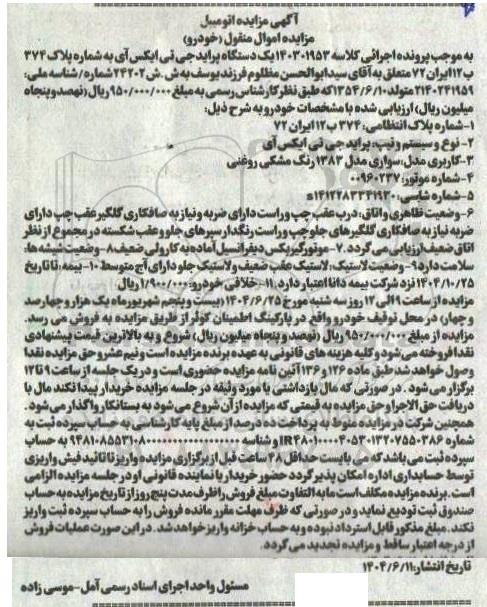 آگهی مزایده اتومبیل
مزایده اموال منقول (خودرو)
به موجب پرونده اجرائی کلاسه ۱۴۰۳۰۱۹۵۳ یک دستگاه پراید جی تی ایکس آی به شماره پلاک ۳۷۴
ب ۱۲ ایران ۷۲ متعلق به آقای سید ابوالحسن مظلوم فرزند یوسف به ش.ش ۲۴۲۰۲ شماره/شناسه ملی:
۲۱۴۰۲۴۱۹۵۹ متولد ۱۳۵۴/۶/۱۰ که طبق نظر کارشناس رسمی به مبلغ ۹۵۰/۰۰۰/۰۰۰ ریال (نهصد و پنجاه
میلیون ریال) ارزیابی شده با مشخصات خودرو به شرح ذیل:
۱-شماره پلاک انتظامی: ۳۷۴ ب ۱۲ ایران ۷۲
۲- نوع و سیستم و تیپ: پراید جی تی ایکس آی
۳-کاربری مدل: سواری مدل ۱۳۸۳ رنگ مشکی روغنی
۴-شماره موتور: ۰۰۹۶۰۲۳۷
۵-شماره شاسی: s۱۴۱۲۲۸۳۳۴۱۹۳۰
۶-وضعیت ظاهری و اتاق: درب عقب چپ و راست دارای ضربه و نیاز به صافکاری گلگیر عقب چپ دارای
ضربه نیاز به صافکاری گلگیرهای جلو چپ و راست رنگ دار سپرهای جلو و عقب شکسته در مجموع از نظر
اتاق ضعیف ارزیابی می گردد. ۷-موتور گیربکس دیفرانسیل آماده به کار ولی ضعیف ۸-وضعیت شیشه ها:
سلامت دارد ۹-وضعیت لاستیک: لاستیک عقب ضعیف و لاستیک جلو دارای آج متوسط ۱۰-بیمه: تا تاریخ
۱۴۰۴/۱۰/۲۵ نزد شرکت بیمه دانا اعتبار دارد. ۱۱-خلافی خودرو: ۱/۹۰۰/۰۰۰ ریال
مزایده از ساعت ۹ الی ۱۲ روز سه شنبه مورخ ۱۴۰۴/۶/۲۵ (بیست و پنجم شهریور ماه یک هزار و چهارصد
و چهار) در محل توقیف خودرو واقع در پارکینگ اطمینان کوثر از طریق مزایده به فروش می رسد.
مزایده از مبلغ ۹۵۰/۰۰۰/۰۰۰ ریال (نهصد و پنجاه میلیون ریال) شروع و به بالاترین قیمت پیشنهادی
نقدا فروخته می شود و کلیه هزینه های قانونی به عهده برنده مزایده است و نیم عشر و حق مزایده نقدا
وصول خواهد شد طبق ماده ۱۲۶ و ۱۳۶ آئین نامه مزایده حضوری است و در یک جلسه از ساعت ۹ تا ۱۲
برگزار می شود. در صورتی که مال بازداشتی یا مورد وثیقه در جلسه مزایده خریدار پیدا نکند مال با
دریافت حق الاجرا و حق مزایده به قیمتی که مزایده از آن شروع می شود به بستانکار واگذار می شود.
همچنین شرکت در مزایده منوط به پرداخت ده درصد از مبلغ پایه کارشناسی به حساب سپرده ثبت به
شماره IR۴۸۰۱۰۰۰۰۴۰۵۳۰۱۳۲۰۷۵۵۰۳۸۶ و شناسه به حساب
سپرده ثبت می باشد که می بایست حداقل ۴۸ ساعت قبل از برگزاری مزایده واریز تا تائید فیش واریزی
توسط حسابداری اداره امکان پذیر گردد حضور خریدار یا نماینده قانونی او در جلسه مزایده الزامی
است. برنده مزایده مکلف است مابه التفاوت مبلغ فروش را ظرف مدت پنج روز از تاریخ مزایده به حساب
صندوق ثبت تودیع نماید و در صورتی که ظرف مهلت مقرر مانده فروش را به حساب سپرده ثبت واریز
نکند. مبلغ مذکور قابل استرداد نبوده و به حساب خزانه واریز خواهد شد. در این صورت عملیات فروش
از درجه اعتبار ساقط و مزایده تجدید می گردد.
تاریخ انتشار: ۱۴۰۴/۶/۱۱
مسئول واحد اجرای اسناد رسمی آمل-موسی زاده